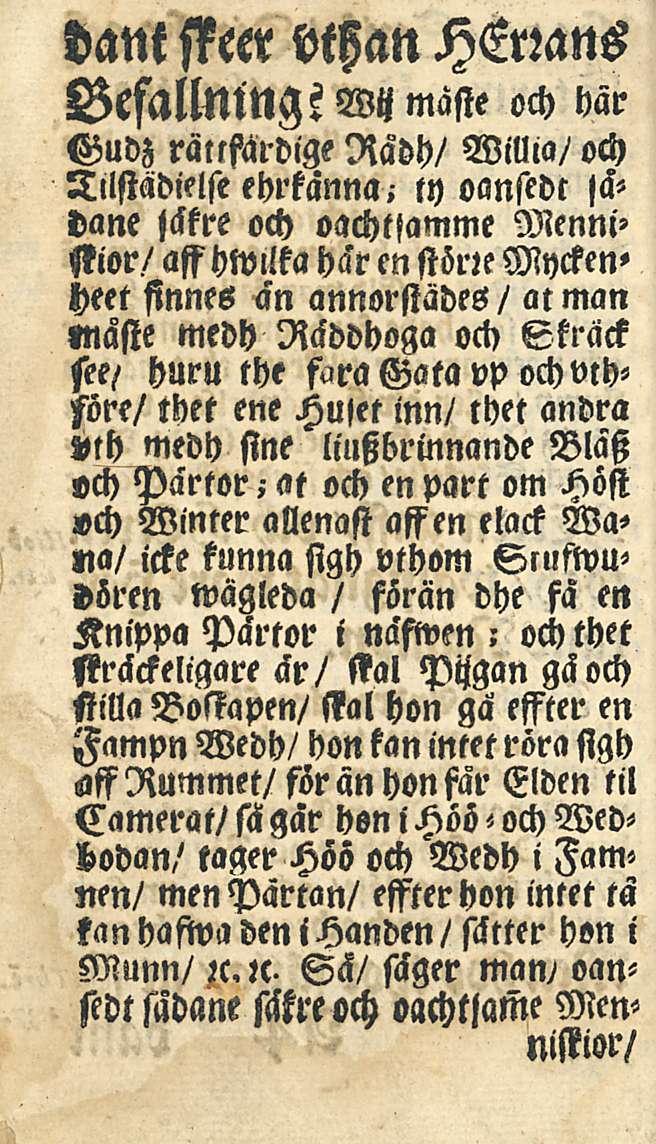 dant skeer vthan HErrans
Befallning? Wij måste och här
Gudz rättfärdige Rådh/ Willia/ och
Tilstädielse ehrkänna; ty oansedt så-
dane säkre och oachtsamme Menni-
skior/ aff hwilka här en större Mycken-
heet finnes än annorstädes / at man
måste medh Räddhoga och Skräck
see/ huru the fara Gata vp och vth-
före/ thet ene Huset inn/ thet andra
vth medh sine liußbrinnande Bläß
och Pärtor; at och en part om Höst
och Winter allenast aff en elack Wa-
na/ icke kunna sigh vthom Stufwu-
dören wägleda / förän dhe få en
Knippa Pärtor i näfwen; och thet
skräckeligare är/ skal Pijgan gå och
stilla Boskapen/ skal hon gå effter en
Fampn Wedh/ hon kan intet röra sigh
aff Rummet/ för än hon får Elden til
Camerat/ så går hon i Höö- och Wed-
bodan/ tager Höö och Wedh i Fam-
nen/ men Pärtan/ effter hon intet tå
kan hafwa den i Handen / sätter hon i
Munn/ ꝛc. ꝛc. Så/ säger man/ oan-
sedt sådane säkre och oachtsam̃e Men-
niskior/